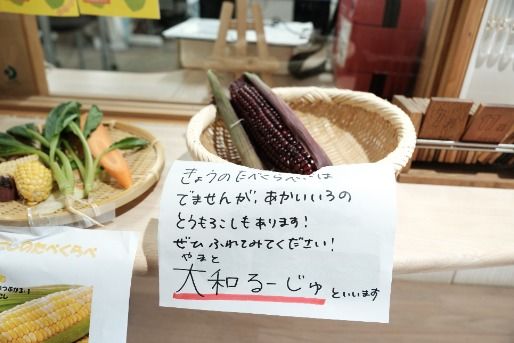 きょうのたべくらべには
でませんが、あかいいろの
とうもろこしもあります!
ぜひ ふれてみてください!
やまと
大和るーじゅ といいます
しのたべくらべ